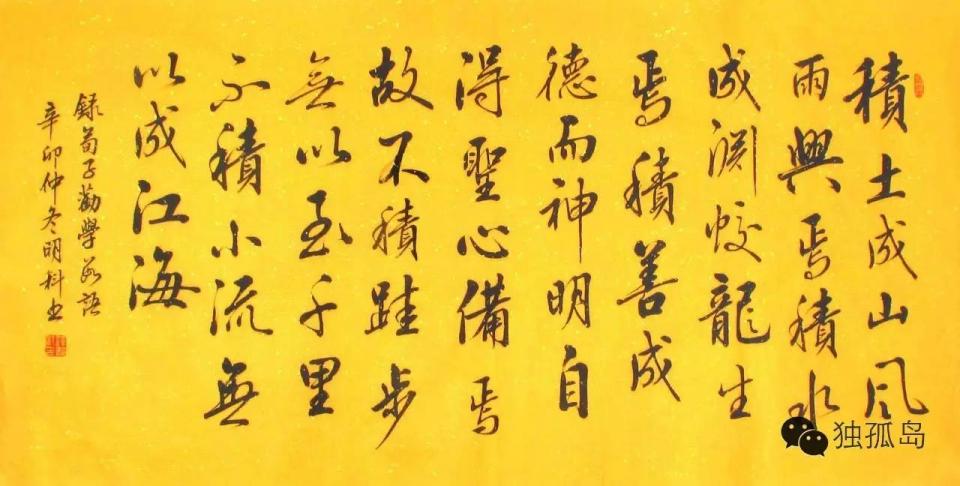 積土成山風
雨興焉積水
成渊蛟龍生
焉積善成
德而神明自
得聖心備焉
故不積跬步
無以至千里
不積小流無
以成江海
録荀子勸學弟語
辛卯仲冬明科书
独孤岛